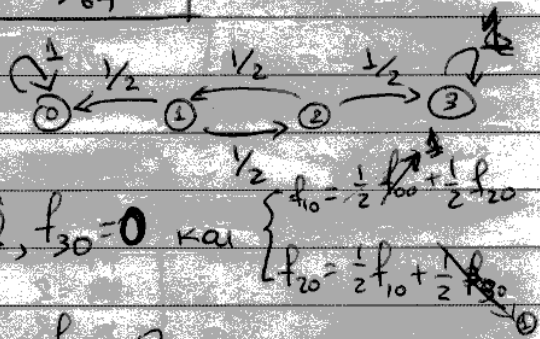 1 1/2 1/2 1/2
0 1 2 3
1/2
, f₃₀ = 0 και { f₁₀ = 1/2 f₀₀ + 1/2 f₂₀
f₂₀ = 1/2 f₁₀ + 1/2 f₃₀